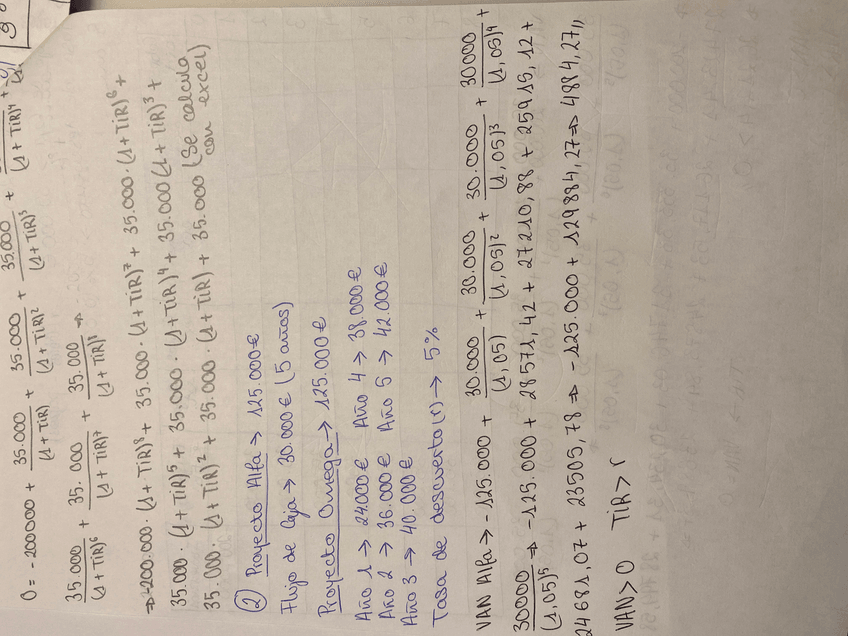 0 = -200000 + 35.000/(1+TiR) + 35.000/(1+TiR)² + 35.000/(1+TiR)³ + /(1+TiR)⁴ +
35.000/(1+TiR)⁶ + 35.000/(1+TiR)⁷ + 35.000/(1+TiR)⁸ ⇒
⇒ -200.000·(1+TiR)⁸ + 35.000·(1+TiR)⁷ + 35.000·(1+TiR)⁶ +
35.000·(1+TiR)⁵ + 35.000·(1+TiR)⁴ + 35.000(1+TiR)³ +
35.000·(1+TiR)² + 35.000·(1+TiR) + 35.000 (Se calcula
con excel)
② Proyecto Alfa → 125.000€
Flujo de Caja → 30.000€ (5 años)
Proyecto Omega → 125.000€
Año 1 → 24.000€ Año 4 → 38.000€
Año 2 → 36.000€ Año 5 → 42.000€
Año 3 → 40.000€
Tasa de descuento (r) → 5%
VAN Alfa → -125.000 + 30.000/(1,05) + 30.000/(1,05)² + 30.000/(1,05)³ + 30000/(1,05)⁴ +
30000/(1,05)⁵ ⇒ -125.000 + 28571,42 + 27210,88 + 25915,12 +
24681,07 + 23505,78 ⇒ -125.000 + 129884,27 ⇒ 4884,27,,
VAN>0 TiR>r